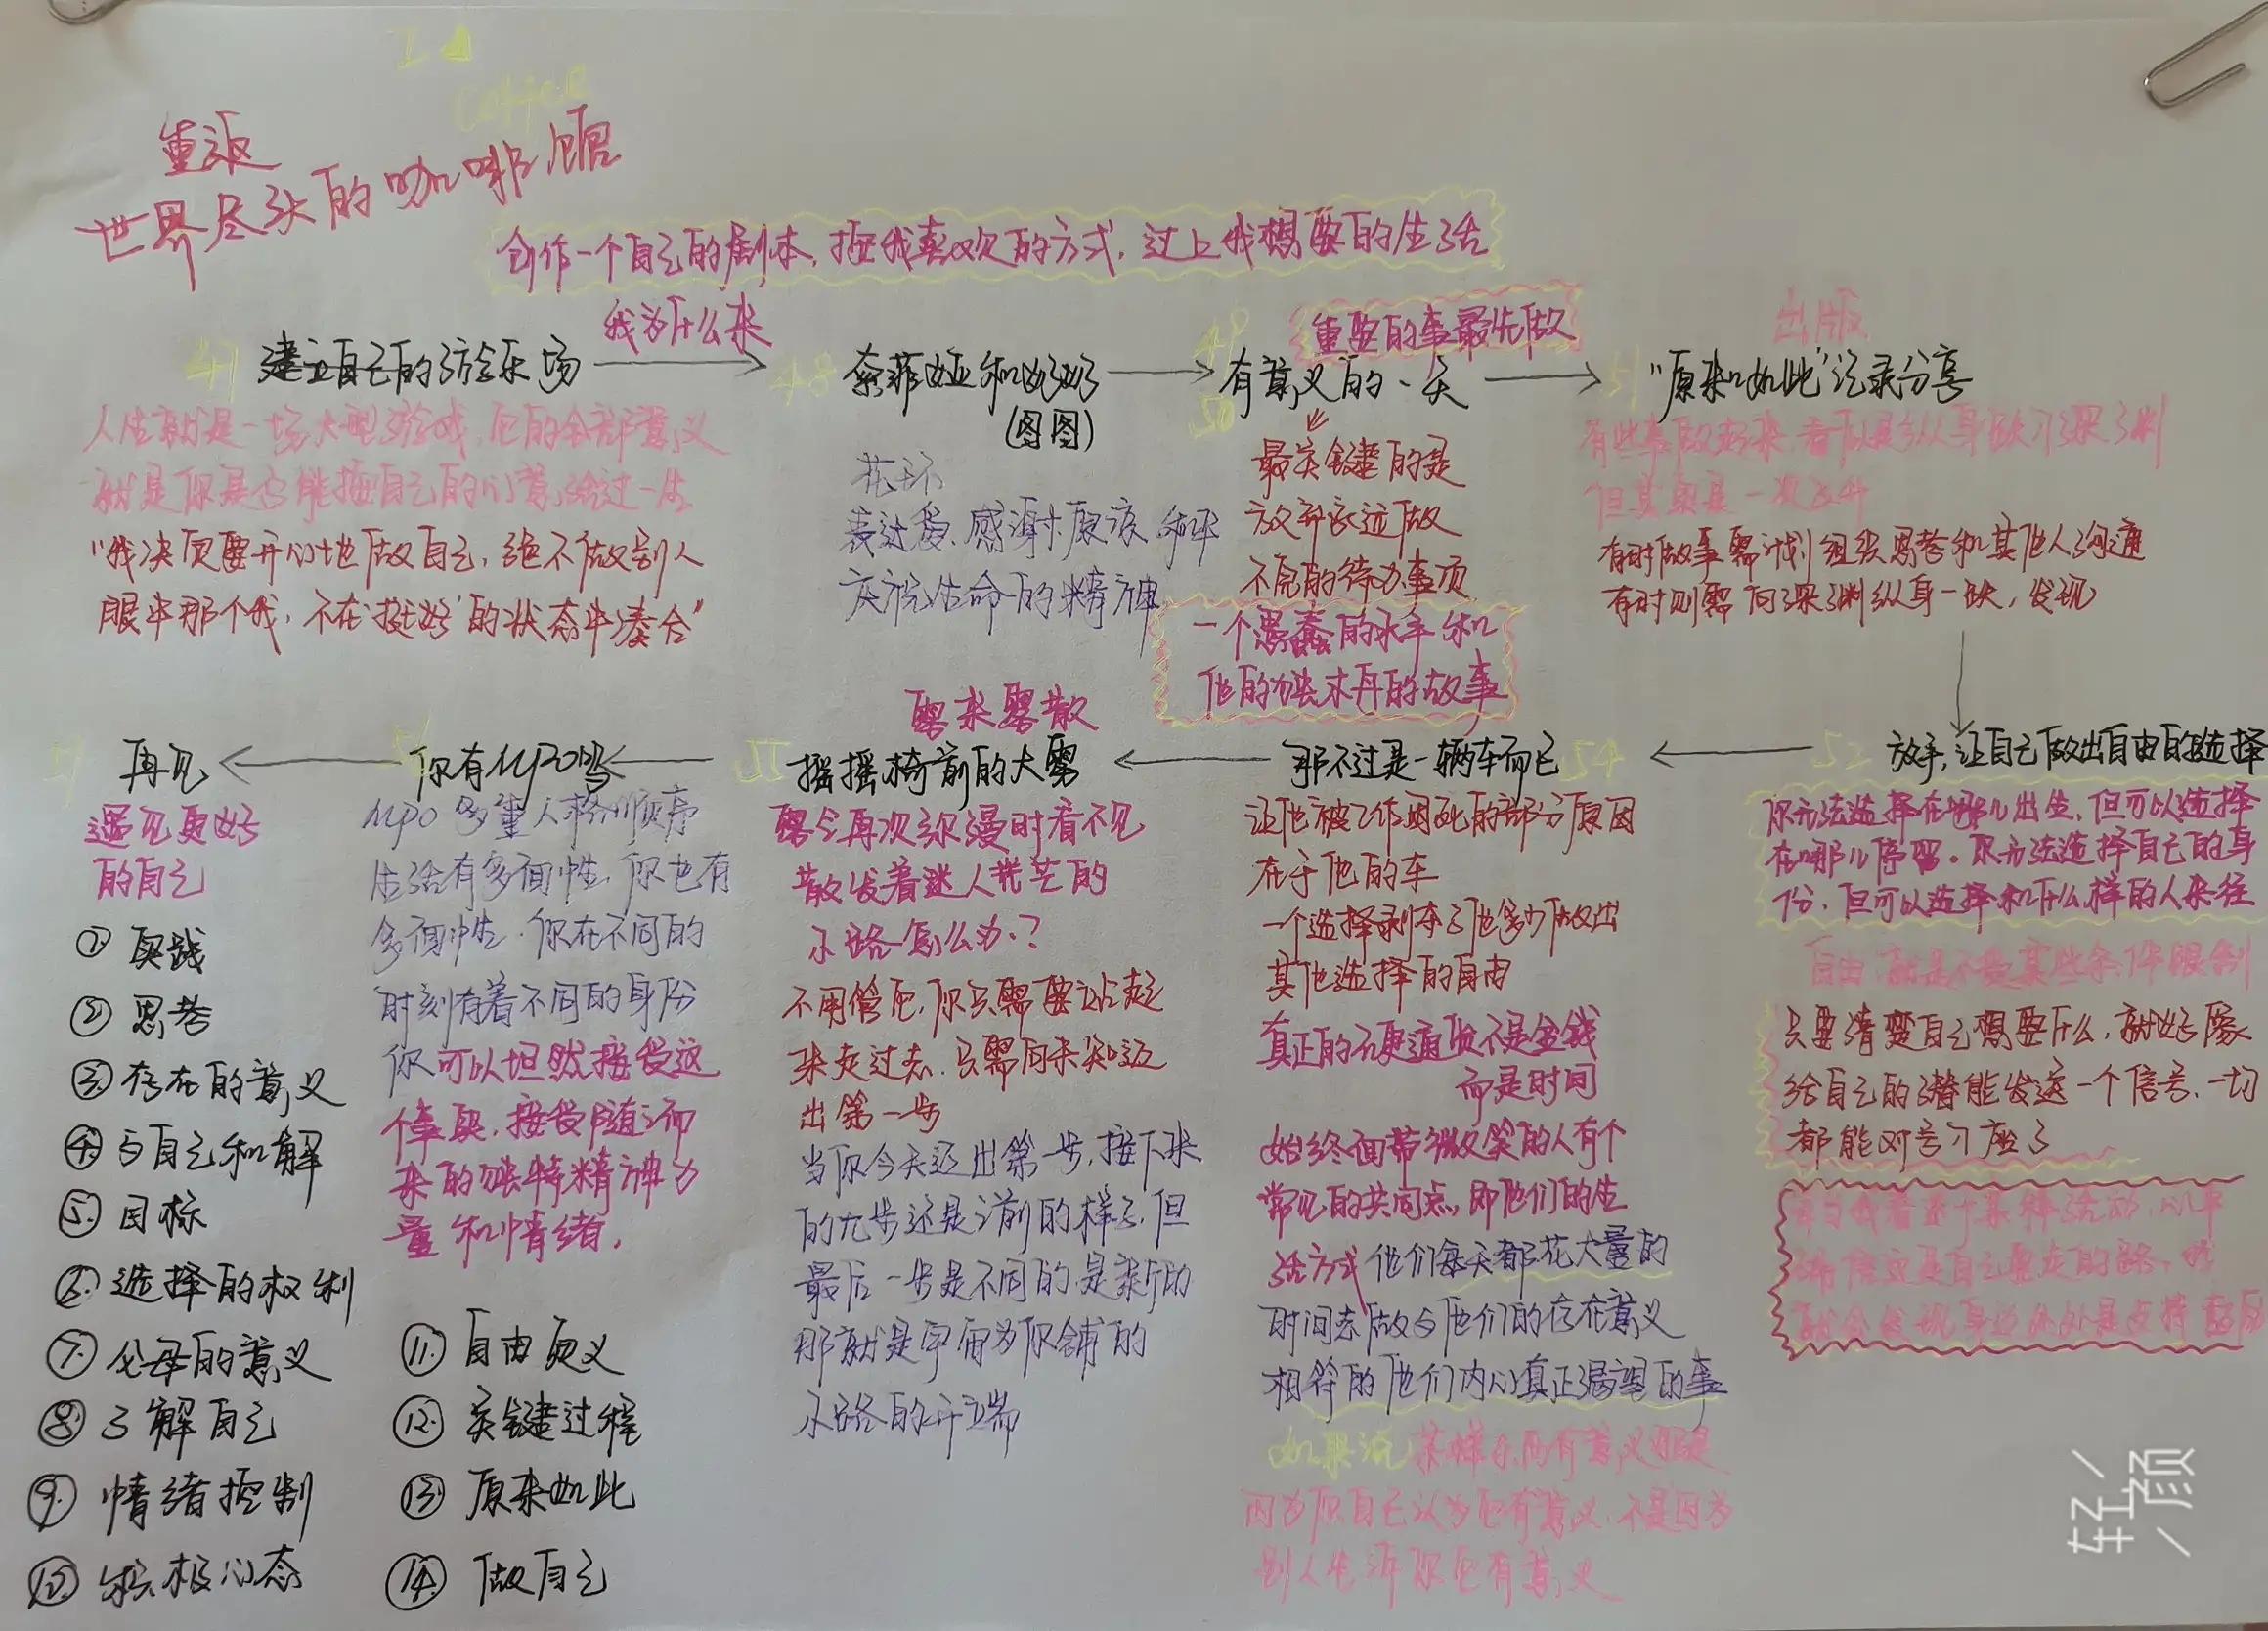 Coffee
重返
世界尽头的咖啡馆
创作一个自己的剧本，按我喜欢的方式，过上我想要的生活
47 建立自己的游乐场
我为什么来
48 索菲娅和奶奶
(图图)
49
50
有意义的一天
重要的事最先做
51 "原来如此"记录分享
出版
人生就是一场大型游戏，它的全部意义
就是你是否能按自己的心意活过一生
"我决定要开心地做自己，绝不做别人
眼中那个我，不在'挺好'的状态中凑合"
花环
表达爱、感谢、原谅、和平
庆祝生命的精神
最关键的是
放弃永远做
不完的待办事项
一个愚蠢的水手和
他的独木舟的故事
有些事做起来看似是纵身跃入深渊
但其实是一次飞升
有时做事需计划组织思考和其他人沟通
有时则需向深渊纵身一跃，发现
52 放手，让自己做出自由的选择
你无法选择在哪儿出生，但可以选择
在哪儿停留。你无法选择自己的身
份，但可以选择和什么样的人来往
自由，就是不受某些条件限制
只要清楚自己想要什么，就好像
给自己的潜能发送一个信号，一切
都能对号入座了
当我着迷于某种活动，心中
确信这是自己要走的路，我
就会发现身边处处是
54 那不过是一辆车而已
让他被工作困死的部分原因
在于他的车
一个选择剥夺了他多少做出
其他选择的自由
真正的硬通货不是金钱
而是时间
始终面带微笑的人有个
常见的共同点，即他们的生
活方式 他们每天都花大量的
时间去做与他们的存在意义
相符的他们内心真正渴望的事
如果说 某样东西有意义那是
因为你自己认为它有意义，不是因为
别人告诉你它有意义
雾来雾散
55 摇摇椅前的大雾
雾令再次弥漫时看不见
散发着迷人光芒的
小路怎么办？
不用管它，你只需要站起
来走过去，只需向未知迈
出第一步
当你今天迈出第一步，接下来
的九步还是之前的样子，但
最后一步是不同的，是新的
那就是宇宙为你铺的
小路的开端
56 你有MPO吗
MPO 多重人格顺序
生活有多面性，你也有
多面性，你在不同的
时刻有着不同的身份
你可以坦然接受这
个事实，接受随之而
来的独特精神力
量和情绪，
57 再见
遇见更好
的自己
① 实践
② 思考
③ 存在的意义
④ 与自己和解
⑤ 目标
⑥ 选择的权利
⑦ 父母的意义
⑧ 了解自己
⑨ 情绪控制
⑩ 积极心态
⑪ 自由页义
⑫ 关键过程
⑬ 原来如此
⑭ 做自己
轻颜